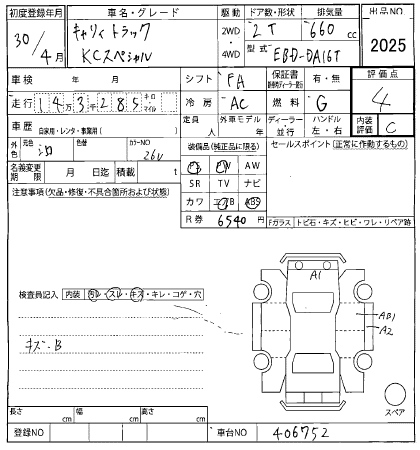 初度登録年月 車名・グレード 駆動 ドア数・形状 排気量 出品NO
30/4月 キャリィトラック 2WD・4WD 2T 660cc 2025
KCスペシャル 型式 EBD-DA16T
車検 年 月 シフト FA 保証書 有・無 評価点
走行 14万3千285 キロ・マイル 冷房 AC 燃料 G 4
車歴 自家用・レンタ・事業用( ) 定員 人 外車モデル 年 ディーラー 並行 ハンドル 左・右 内装評価 C
外色 元色 シロ 色替 カラーNO 26U 装備品(純正品に限る) セールスポイント(正常に作動するもの)
名義変更期限 月 日迄 積載 t PS PW AW
SR TV ナビ
注意事項(欠品・修復・不具合箇所および状態) カワ エアB ABS
R券 6540円
Fガラス トビ石・キズ・ヒビ・ワレ・リペア跡
A1
検査員記入 内装 汚レ・スレ・キズ・キレ・コゲ・穴
AB1
A2
キズ・B
スペア
長さ cm 幅 cm 高さ cm
登録NO 車台NO 406752